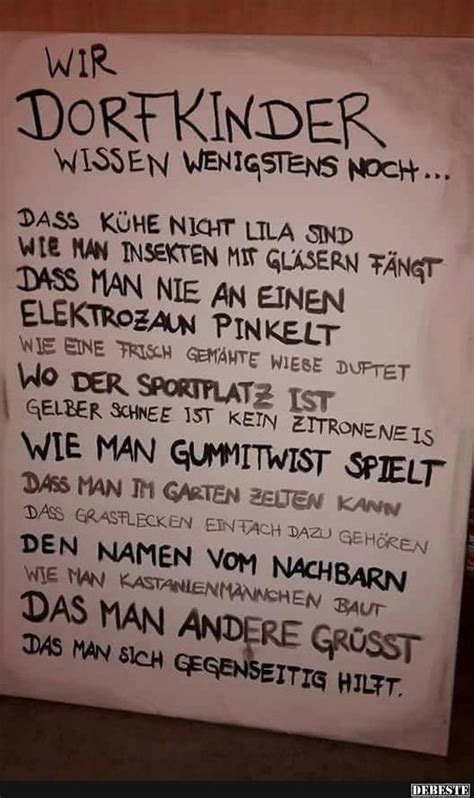 WIR
DORFKINDER
WISSEN WENIGSTENS NOCH...
DASS KÜHE NICHT LILA SIND
WIE MAN INSEKTEN MIT GLÄSERN FÄNGT
DASS MAN NIE AN EINEN
ELEKTROZAUN PINKELT
WIE EINE FRISCH GEMÄHTE WIESE DUFTET
WO DER SPORTPLATZ IST
GELBER SCHNEE IST KEIN ZITRONENEIS
WIE MAN GUMMITWIST SPIELT
DASS MAN IM GARTEN ZELTEN KANN
DASS GRASFLECKEN EINFACH DAZU GEHÖREN
DEN NAMEN VOM NACHBARN
WIE MAN KASTANIENMÄNNCHEN BAUT
DAS MAN ANDERE GRÜSST
DAS MAN SICH GEGENSEITIG HILFT.
DEBESTE